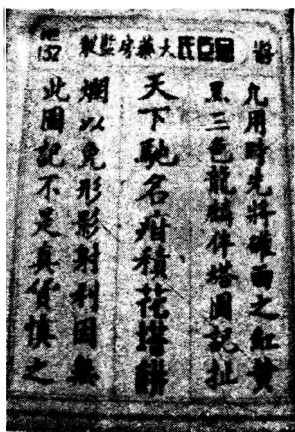 屈臣氏大藥房監製
No 132
凡用時先將礶面之紅黃
黑三色龍鶴伴塔圖記扯
天下馳名疳積花塔餅
爛以免形影射利因無
此圖記不是真貨慎之